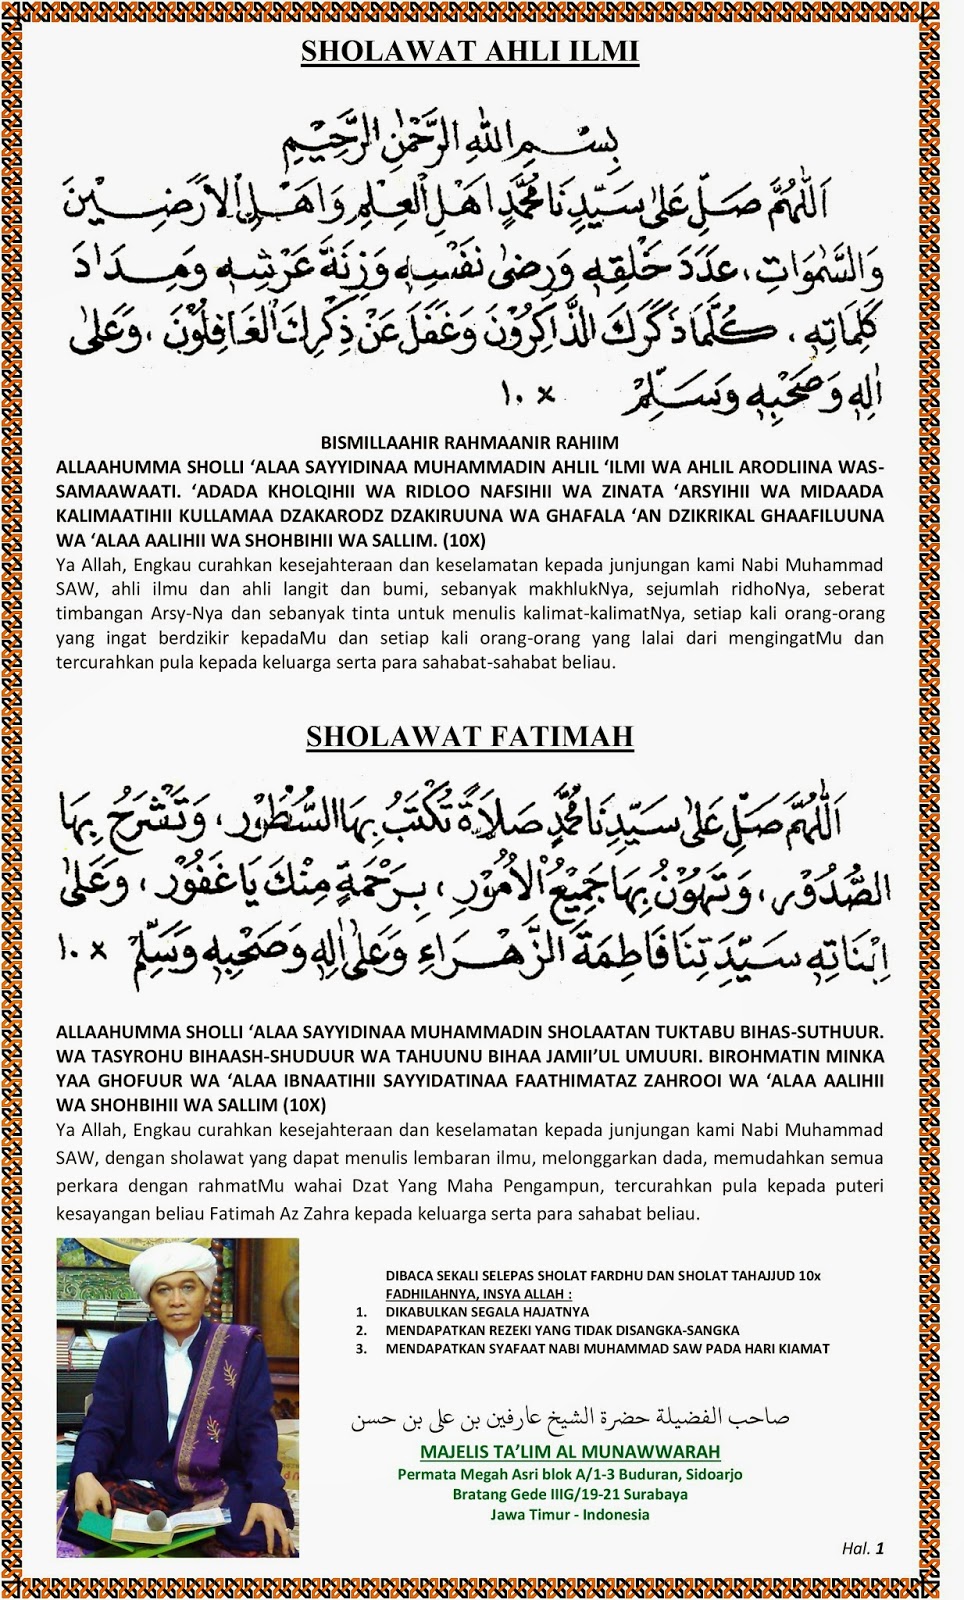 SHOLAWAT AHLI ILMI
بِسْمِ اللهِ الرَّحْمٰنِ الرَّحِيْمِ
اَللّٰهُمَّ صَلِّ عَلٰى سَيِّدِنَا مُحَمَّدٍ اَهْلِ الْعِلْمِ وَاَهْلِ الْاَرَضِيْنَ
وَالسَّمٰوَاتِ، عَدَدَ خَلْقِهٖ وَرِضٰى نَفْسِهٖ وَزِنَةَ عَرْشِهٖ وَمِدَادَ
كَلِمَاتِهٖ، كُلَّمَا ذَكَرَكَ الذَّاكِرُوْنَ وَغَفَلَ عَنْ ذِكْرِكَ الْغَافِلُوْنَ، وَعَلٰى
اٰلِهٖ وَصَحْبِهٖ وَسَلِّمْ ١٠ x
BISMILLAAHIR RAHMAANIR RAHIIM
ALLAAHUMMA SHOLLI ‘ALAA SAYYIDINAA MUHAMMADIN AHLIL ‘ILMI WA AHLIL ARODLIINA WAS-
SAMAAWAATI. ‘ADADA KHOLQIHII WA RIDLOO NAFSIHII WA ZINATA ‘ARSYIHII WA MIDAADA
KALIMAATIHII KULLAMAA DZAKARODZ DZAKIRUUNA WA GHAFALA ‘AN DZIKRIKAL GHAAFILUUNA
WA ‘ALAA AALIHII WA SHOHBIHII WA SALLIM. (10X)
Ya Allah, Engkau curahkan kesejahteraan dan keselamatan kepada junjungan kami Nabi Muhammad
SAW, ahli ilmu dan ahli langit dan bumi, sebanyak makhlukNya, sejumlah ridhoNya, seberat
timbangan Arsy-Nya dan sebanyak tinta untuk menulis kalimat-kalimatNya, setiap kali orang-orang
yang ingat berdzikir kepadaMu dan setiap kali orang-orang yang lalai dari mengingatMu dan
tercurahkan pula kepada keluarga serta para sahabat-sahabat beliau.
SHOLAWAT FATIMAH
اَللّٰهُمَّ صَلِّ عَلٰى سَيِّدِنَا مُحَمَّدٍ صَلَاةً تُكْتَبُ بِهَا السُّطُوْرِ، وَتَشْرَحُ بِهَا
الصُّدُوْرِ، وَتَهُوْنُ بِهَا جَمِيْعُ الْاُمُوْرِ، بِرَحْمَةٍ مِنْكَ يَا غَفُوْرُ، وَعَلٰى
اِبْنَاتِهٖ سَيِّدَتِنَا فَاطِمَةَ الزَّهْرَاءِ وَعَلٰى اٰلِهٖ وَصَحْبِهٖ وَسَلِّمْ ١٠ x
ALLAAHUMMA SHOLLI ‘ALAA SAYYIDINAA MUHAMMADIN SHOLAATAN TUKTABU BIHAS-SUTHUUR.
WA TASYROHU BIHAASH-SHUDUUR WA TAHUUNU BIHAA JAMII’UL UMUURI. BIROHMATIN MINKA
YAA GHOFUUR WA ‘ALAA IBNAATIHII SAYYIDATINAA FAATHIMATAZ ZAHROOI WA ‘ALAA AALIHII
WA SHOHBIHII WA SALLIM (10X)
Ya Allah, Engkau curahkan kesejahteraan dan keselamatan kepada junjungan kami Nabi Muhammad
SAW, dengan sholawat yang dapat menulis lembaran ilmu, melonggarkan dada, memudahkan semua
perkara dengan rahmatMu wahai Dzat Yang Maha Pengampun, tercurahkan pula kepada puteri
kesayangan beliau Fatimah Az Zahra kepada keluarga serta para sahabat beliau.
DIBACA SEKALI SELEPAS SHOLAT FARDHU DAN SHOLAT TAHAJJUD 10x
FADHILAHNYA, INSYA ALLAH :
1. DIKABULKAN SEGALA HAJATNYA
2. MENDAPATKAN REZEKI YANG TIDAK DISANGKA-SANGKA
3. MENDAPATKAN SYAFAAT NABI MUHAMMAD SAW PADA HARI KIAMAT
صاحب الفضيلة حضرة الشيخ عارفين بن على بن حسن
MAJELIS TA’LIM AL MUNAWWARAH
Permata Megah Asri blok A/1-3 Buduran, Sidoarjo
Bratang Gede IIIG/19-21 Surabaya
Jawa Timur - Indonesia
Hal. 1